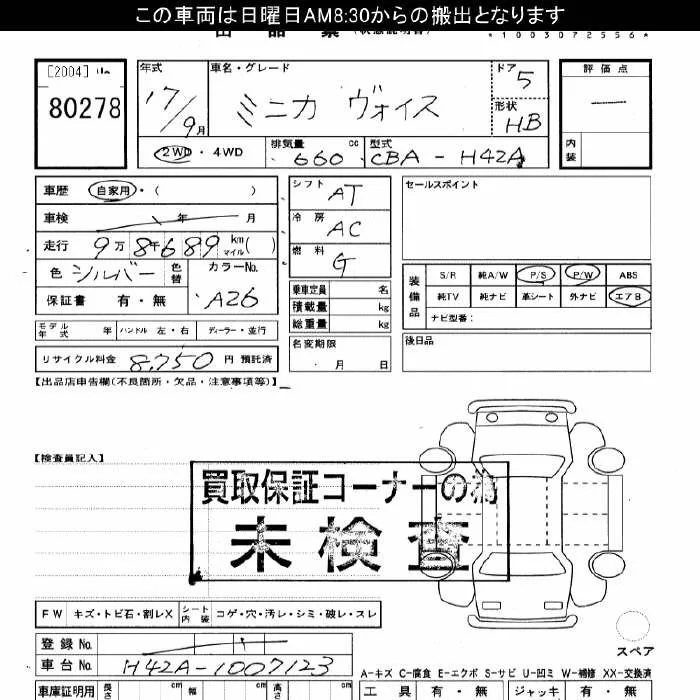 この車両は日曜日AM8:30からの搬出となります
出品票 (状態説明書) *1003072556*
[2004]
80278
年式 車名・グレード ドア 5 評価点
17/9月 ミニカ ヴォイス 形状 HB —
2WD・4WD 排気量 660 cc 型式 CBA-H42A 内装
車歴 自家用・( )
車検 年 月
走行 9万8千689 km マイル( )
色 シルバー 色替 カラーNo. A26
保証書 有・無
モデル年式 年 ハンドル 左・右 ディーラー・並行
リサイクル料金 8,750 円 預託済
シフト AT
冷房 AC
燃料 G
乗車定員 名
積載量 kg
総重量 kg
名変期限 月 日
セールスポイント
装備品 S/R 純A/W P/S P/W ABS
純TV 純ナビ 革シート 外ナビ エアB
ナビ型番:
後日品
【出品店申告欄(不良箇所・欠品・注意事項等)】
【検査員記入】
買取保証コーナーの為
未検査
FW キズ・トビ石・割レX シート内装 コゲ・穴・汚レ・シミ・破レ・スレ
登録No.
車台No. H42A-1007123
スペア
A-キズ C-腐食 E-エクボ S-サビ U-凹ミ W-補修 XX-交換済
車庫証明用 長さ cm 幅 cm 高さ cm 工具 有・無 ジャッキ 有・無